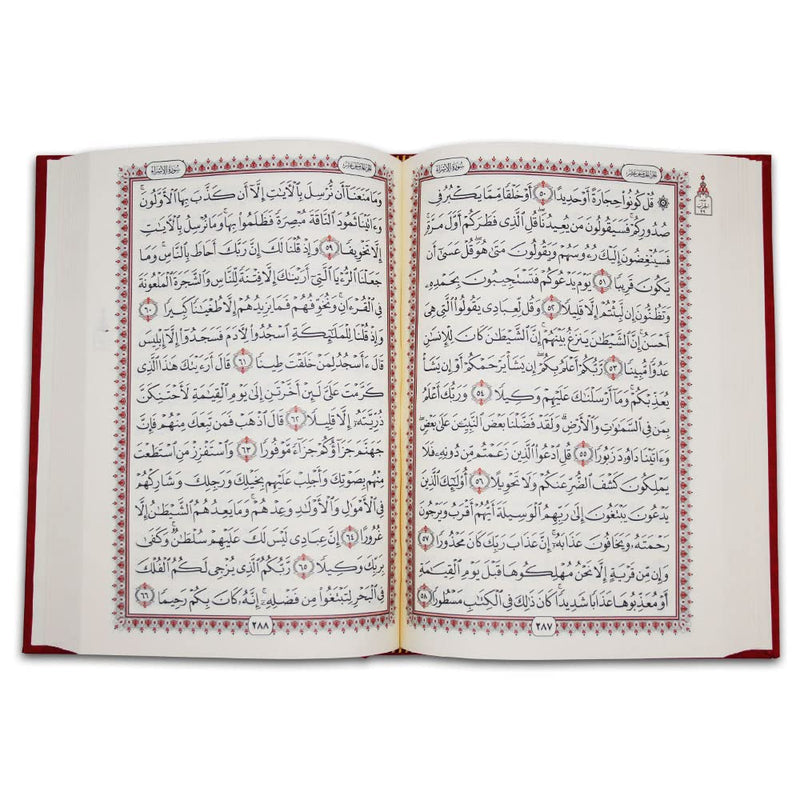 سورة الإسراء
الجزء الخامس عشر
۞ قُلْ كُونُوا۟ حِجَارَةً أَوْ حَدِيدًا ٥٠ أَوْ خَلْقًا مِّمَّا يَكْبُرُ فِى
صُدُورِكُمْ ۚ فَسَيَقُولُونَ مَن يُعِيدُنَا ۖ قُلِ ٱلَّذِى فَطَرَكُمْ أَوَّلَ مَرَّةٍ ۚ
فَسَيُنْغِضُونَ إِلَيْكَ رُءُوسَهُمْ وَيَقُولُونَ مَتَىٰ هُوَ ۖ قُلْ عَسَىٰٓ أَن
يَكُونَ قَرِيبًا ٥١ يَوْمَ يَدْعُوكُمْ فَتَسْتَجِيبُونَ بِحَمْدِهِۦ
وَتَظُنُّونَ إِن لَّبِثْتُمْ إِلَّا قَلِيلًا ٥٢ وَقُل لِّعِبَادِى يَقُولُوا۟ ٱلَّتِى هِىَ
أَحْسَنُ ۚ إِنَّ ٱلشَّيْطَٰنَ يَنزَغُ بَيْنَهُمْ ۚ إِنَّ ٱلشَّيْطَٰنَ كَانَ لِلْإِنسَٰنِ
عَدُوًّا مُّبِينًا ٥٣ رَّبُّكُمْ أَعْلَمُ بِكُمْ ۖ إِن يَشَأْ يَرْحَمْكُمْ أَوْ إِن يَشَأْ
يُعَذِّبْكُمْ ۚ وَمَآ أَرْسَلْنَٰكَ عَلَيْهِمْ وَكِيلًا ٥٤ وَرَبُّكَ أَعْلَمُ
بِمَن فِى ٱلسَّمَٰوَٰتِ وَٱلْأَرْضِ ۗ وَلَقَدْ فَضَّلْنَا بَعْضَ ٱلنَّبِيِّـۧنَ عَلَىٰ بَعْضٍ ۖ
وَءَاتَيْنَا دَاوُۥدَ زَبُورًا ٥٥ قُلِ ٱدْعُوا۟ ٱلَّذِينَ زَعَمْتُم مِّن دُونِهِۦ فَلَا
يَمْلِكُونَ كَشْفَ ٱلضُّرِّ عَنكُمْ وَلَا تَحْوِيلًا ٥٦ أُو۟لَٰٓئِكَ ٱلَّذِينَ
يَدْعُونَ يَبْتَغُونَ إِلَىٰ رَبِّهِمُ ٱلْوَسِيلَةَ أَيُّهُمْ أَقْرَبُ وَيَرْجُونَ
رَحْمَتَهُۥ وَيَخَافُونَ عَذَابَهُۥٓ ۚ إِنَّ عَذَابَ رَبِّكَ كَانَ مَحْذُورًا ٥٧
وَإِن مِّن قَرْيَةٍ إِلَّا نَحْنُ مُهْلِكُوهَا قَبْلَ يَوْمِ ٱلْقِيَٰمَةِ
أَوْ مُعَذِّبُوهَا عَذَابًا شَدِيدًا ۚ كَانَ ذَٰلِكَ فِى ٱلْكِتَٰبِ مَسْطُورًا ٥٨
٢٨٧
الجزء الخامس عشر
سورة الإسراء
وَمَا مَنَعَنَآ أَن نُّرْسِلَ بِٱلْءَايَٰتِ إِلَّآ أَن كَذَّبَ بِهَا ٱلْأَوَّلُونَ ۚ
وَءَاتَيْنَا ثَمُودَ ٱلنَّاقَةَ مُبْصِرَةً فَظَلَمُوا۟ بِهَا ۚ وَمَا نُرْسِلُ بِٱلْءَايَٰتِ
إِلَّا تَخْوِيفًا ٥٩ وَإِذْ قُلْنَا لَكَ إِنَّ رَبَّكَ أَحَاطَ بِٱلنَّاسِ ۚ وَمَا
جَعَلْنَا ٱلرُّءْيَا ٱلَّتِىٓ أَرَيْنَٰكَ إِلَّا فِتْنَةً لِّلنَّاسِ وَٱلشَّجَرَةَ ٱلْمَلْعُونَةَ
فِى ٱلْقُرْءَانِ ۚ وَنُخَوِّفُهُمْ فَمَا يَزِيدُهُمْ إِلَّا طُغْيَٰنًا كَبِيرًا ٦٠
وَإِذْ قُلْنَا لِلْمَلَٰٓئِكَةِ ٱسْجُدُوا۟ لِءَادَمَ فَسَجَدُوٓا۟ إِلَّآ إِبْلِيسَ
قَالَ ءَأَسْجُدُ لِمَنْ خَلَقْتَ طِينًا ٦١ قَالَ أَرَءَيْتَكَ هَٰذَا ٱلَّذِى
كَرَّمْتَ عَلَىَّ لَئِنْ أَخَّرْتَنِ إِلَىٰ يَوْمِ ٱلْقِيَٰمَةِ لَأَحْتَنِكَنَّ
ذُرِّيَّتَهُۥٓ إِلَّا قَلِيلًا ٦٢ قَالَ ٱذْهَبْ فَمَن تَبِعَكَ مِنْهُمْ فَإِنَّ
جَهَنَّمَ جَزَآؤُكُمْ جَزَآءً مَّوْفُورًا ٦٣ وَٱسْتَفْزِزْ مَنِ ٱسْتَطَعْتَ
مِنْهُم بِصَوْتِكَ وَأَجْلِبْ عَلَيْهِم بِخَيْلِكَ وَرَجِلِكَ وَشَارِكْهُمْ
فِى ٱلْأَمْوَٰلِ وَٱلْأَوْلَٰدِ وَعِدْهُمْ ۚ وَمَا يَعِدُهُمُ ٱلشَّيْطَٰنُ إِلَّا
غُرُورًا ٦٤ إِنَّ عِبَادِى لَيْسَ لَكَ عَلَيْهِمْ سُلْطَٰنٌ ۚ وَكَفَىٰ
بِرَبِّكَ وَكِيلًا ٦٥ رَّبُّكُمُ ٱلَّذِى يُزْجِى لَكُمُ ٱلْفُلْكَ
فِى ٱلْبَحْرِ لِتَبْتَغُوا۟ مِن فَضْلِهِۦٓ ۚ إِنَّهُۥ كَانَ بِكُمْ رَحِيمًا ٦٦
٢٨٨